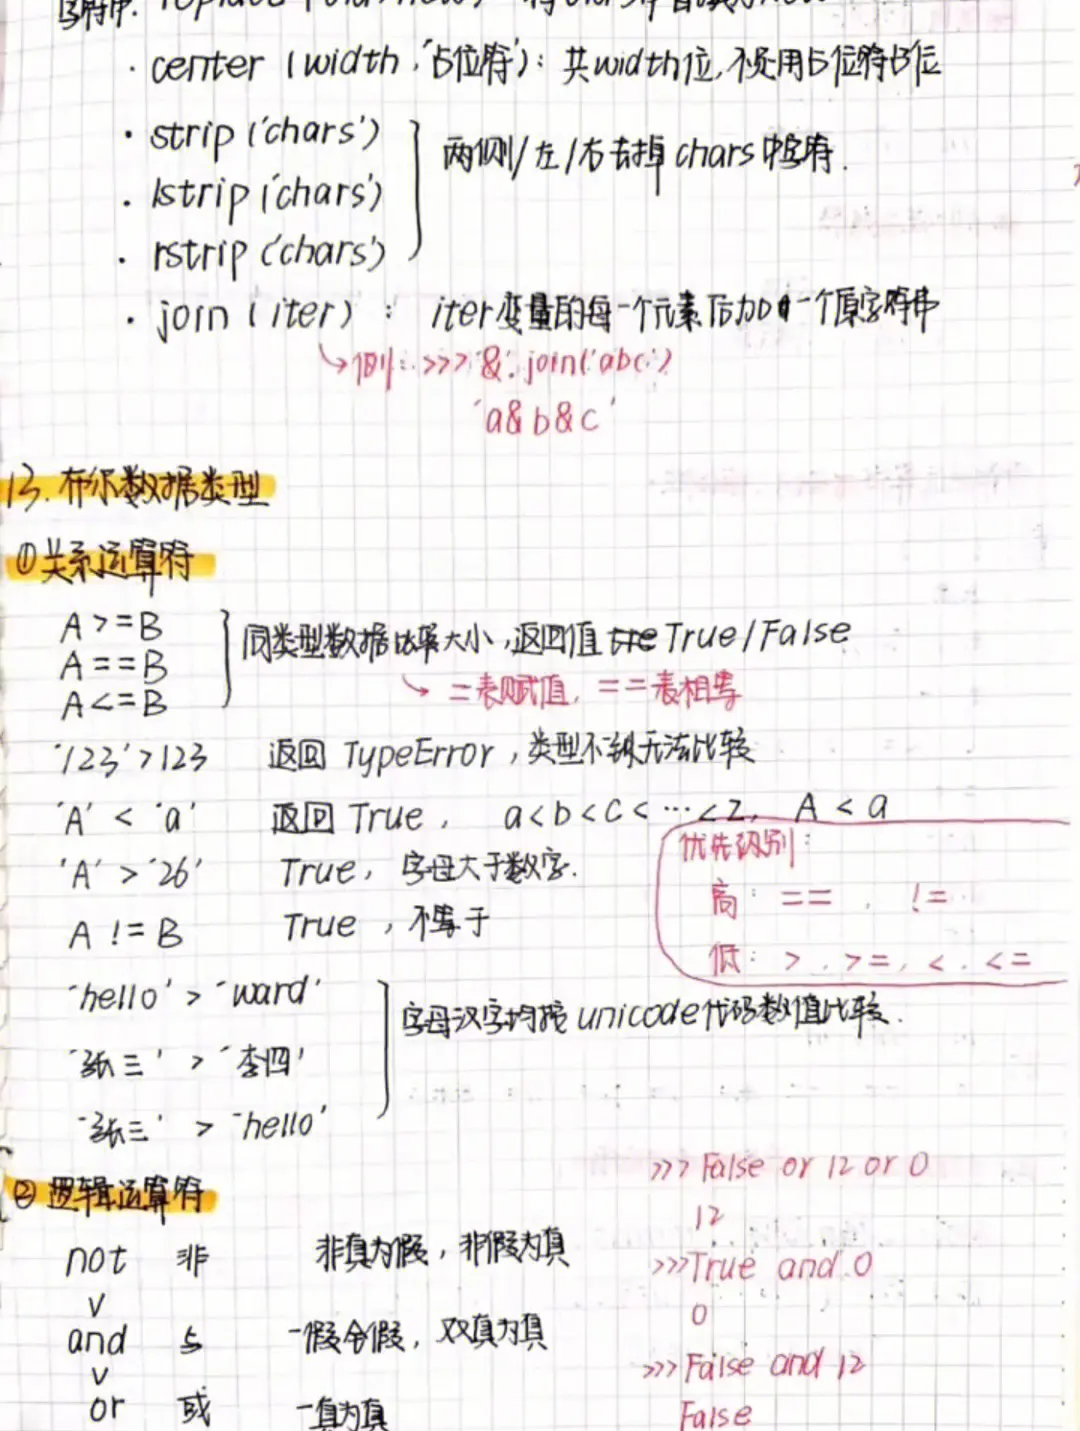 · center (width,'占位符'): 共width位,不足用占位符占位
· strip ('chars')
· lstrip ('chars')
· rstrip ('chars')
两侧/左/右去掉chars中字符.
· join (iter) : iter变量的每一个元素后加一个原字符串
例: >>> '&'.join('abc')
'a&b&c'
13. 布尔数据类型
①关系运算符
A>=B
A==B
A<=B
同类型数据比较大小,返回值 True/False
=表赋值, ==表相等
'123'>123 返回 TypeError,类型不同无法比较
'A' < 'a' 返回 True, a<b<c<…<z, A<a
'A' > '26' True, 字母大于数字.
A != B True ,不等于
优先级别:
高: == , !=
低: > , >= , < , <=
'hello' > 'ward'
'张三' > '李四'
'张三' > 'hello'
字母汉字均按 unicode代码数值比较.
②逻辑运算符
not 非 非真为假,非假为真
∨
and 与 一假令假,双真为真
∨
or 或 一真为真
>>> False or 12 or 0
12
>>> True and 0
0
>>> False and 12
False